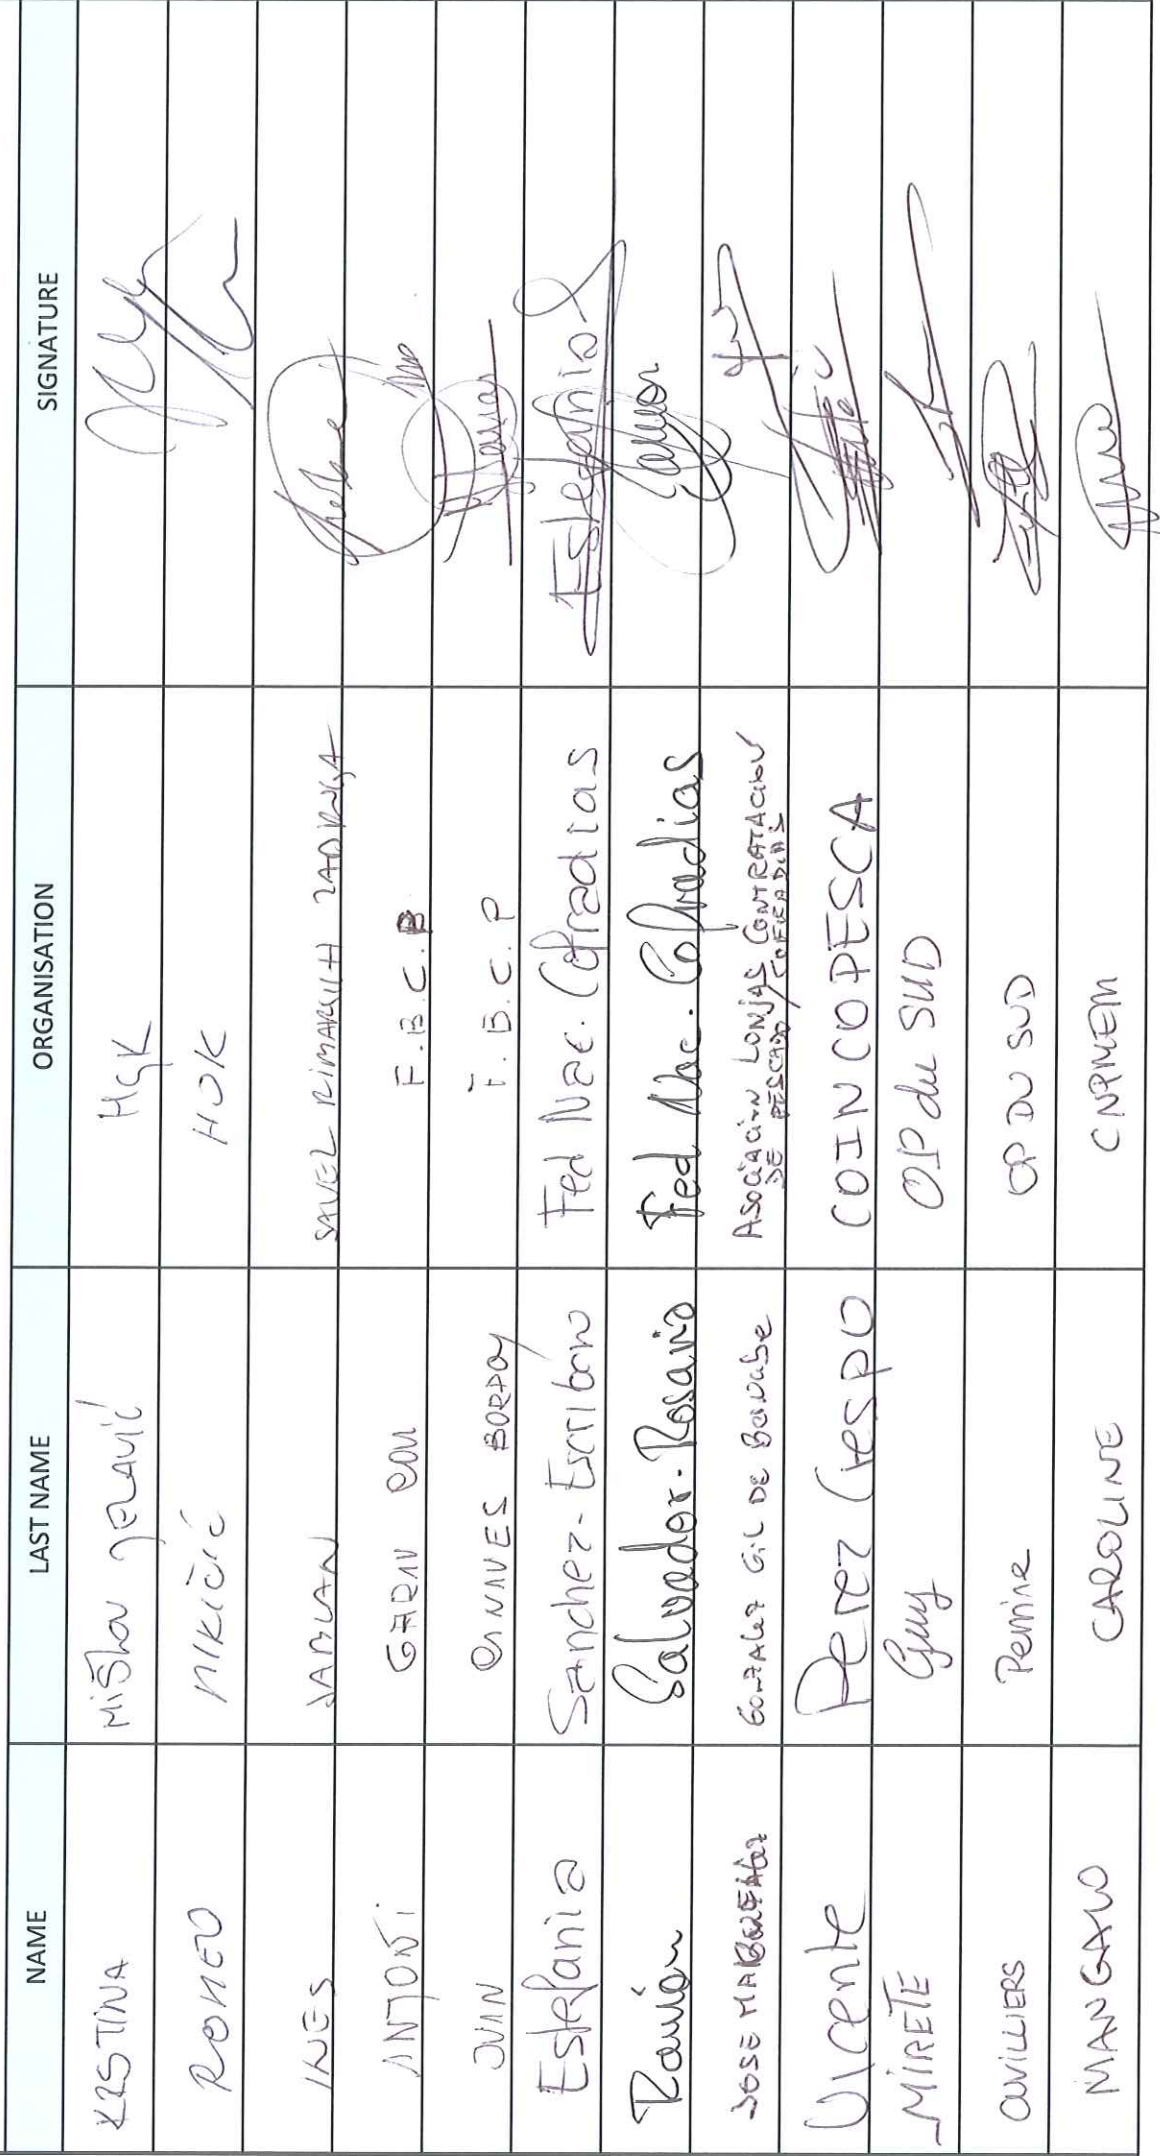 NAME LAST NAME ORGANISATION SIGNATURE
KRSTINA Mišlov JELAVIĆ HGK
ROMEO NIKIČIĆ HOK
INES JABLAN SAVEZ RIBARSKIH ZADRUGA
ANTONI GARAU F.B.C.P
JUAN BORDOY F.B.C.P
Estefania Sanchez-Escribano Fed Nac. Cofradias Estefania
Ramón Salvador-Rosario Fed Nac. Cofradias
JOSE MARIA GONZALEZ GIL DE Bernabe Asociación LONJAS CONTRATACIÓN
DE PESCADO COFRADIAS
Vicente Perez Crespo COINCOPESCA
MIRETE Guy OP du SUD
CUVILLIERS Perrine OP DU SUD
MANGALO CAROLINE CNPMEM